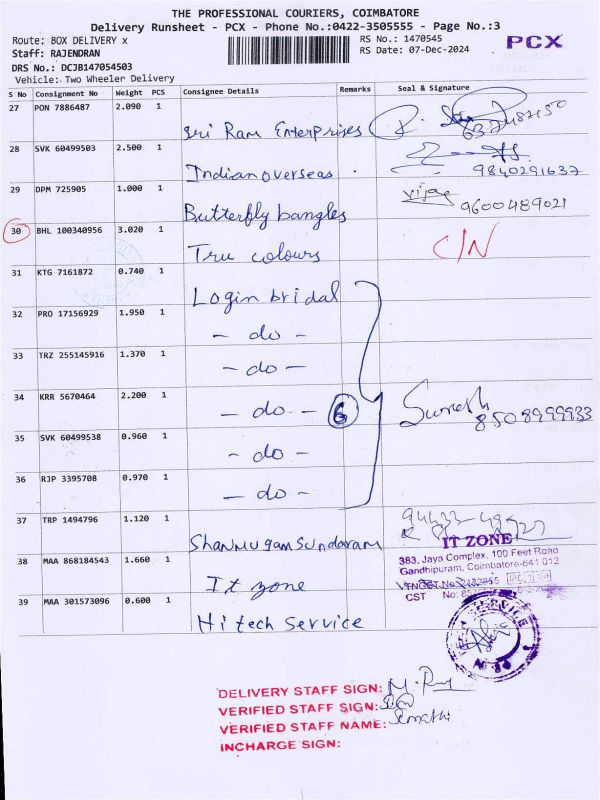 THE PROFESSIONAL COURIERS, COIMBATORE
Delivery Runsheet - PCX - Phone No.:0422-3505555 - Page No.:3
Route: BOX DELIVERY x
Staff: RAJENDRAN
DRS No.: DCJB147054503
Vehicle: Two Wheeler Delivery
RS No.: 1470545
RS Date: 07-Dec-2024
PCX
S No Consignment No Weight PCS Consignee Details Remarks Seal & Signature
27 PON 7886487 2.090 1 Sri Ram Enterprises
28 SVK 60499503 2.500 1 Indian overseas 9840291637
29 DPM 725905 1.000 1 Butterfly bangles vijay 9600489021
30 BHL 100340956 3.020 1 Tru colours C/N
31 KTG 7161872 0.740 1 Login bridal
32 PRO 17156929 1.950 1 - do -
33 TRZ 255145916 1.370 1 - do -
34 KRR 5670464 2.200 1 - do - 6 Suresh 8508999933
35 SVK 60499538 0.960 1 - do -
36 RJP 3395708 0.970 1 - do -
37 TRP 1494796 1.120 1 Shanmugam Sundaram
38 MAA 868184543 1.660 1 It zone
IT ZONE
383, Jaya Complex, 100 Feet Road
Gandhipuram, Coimbatore-641 012
TNGST No
CST No:
39 MAA 301573096 0.600 1 Hitech Service
DELIVERY STAFF SIGN:
VERIFIED STAFF SIGN:
VERIFIED STAFF NAME: Sumathi
INCHARGE SIGN: